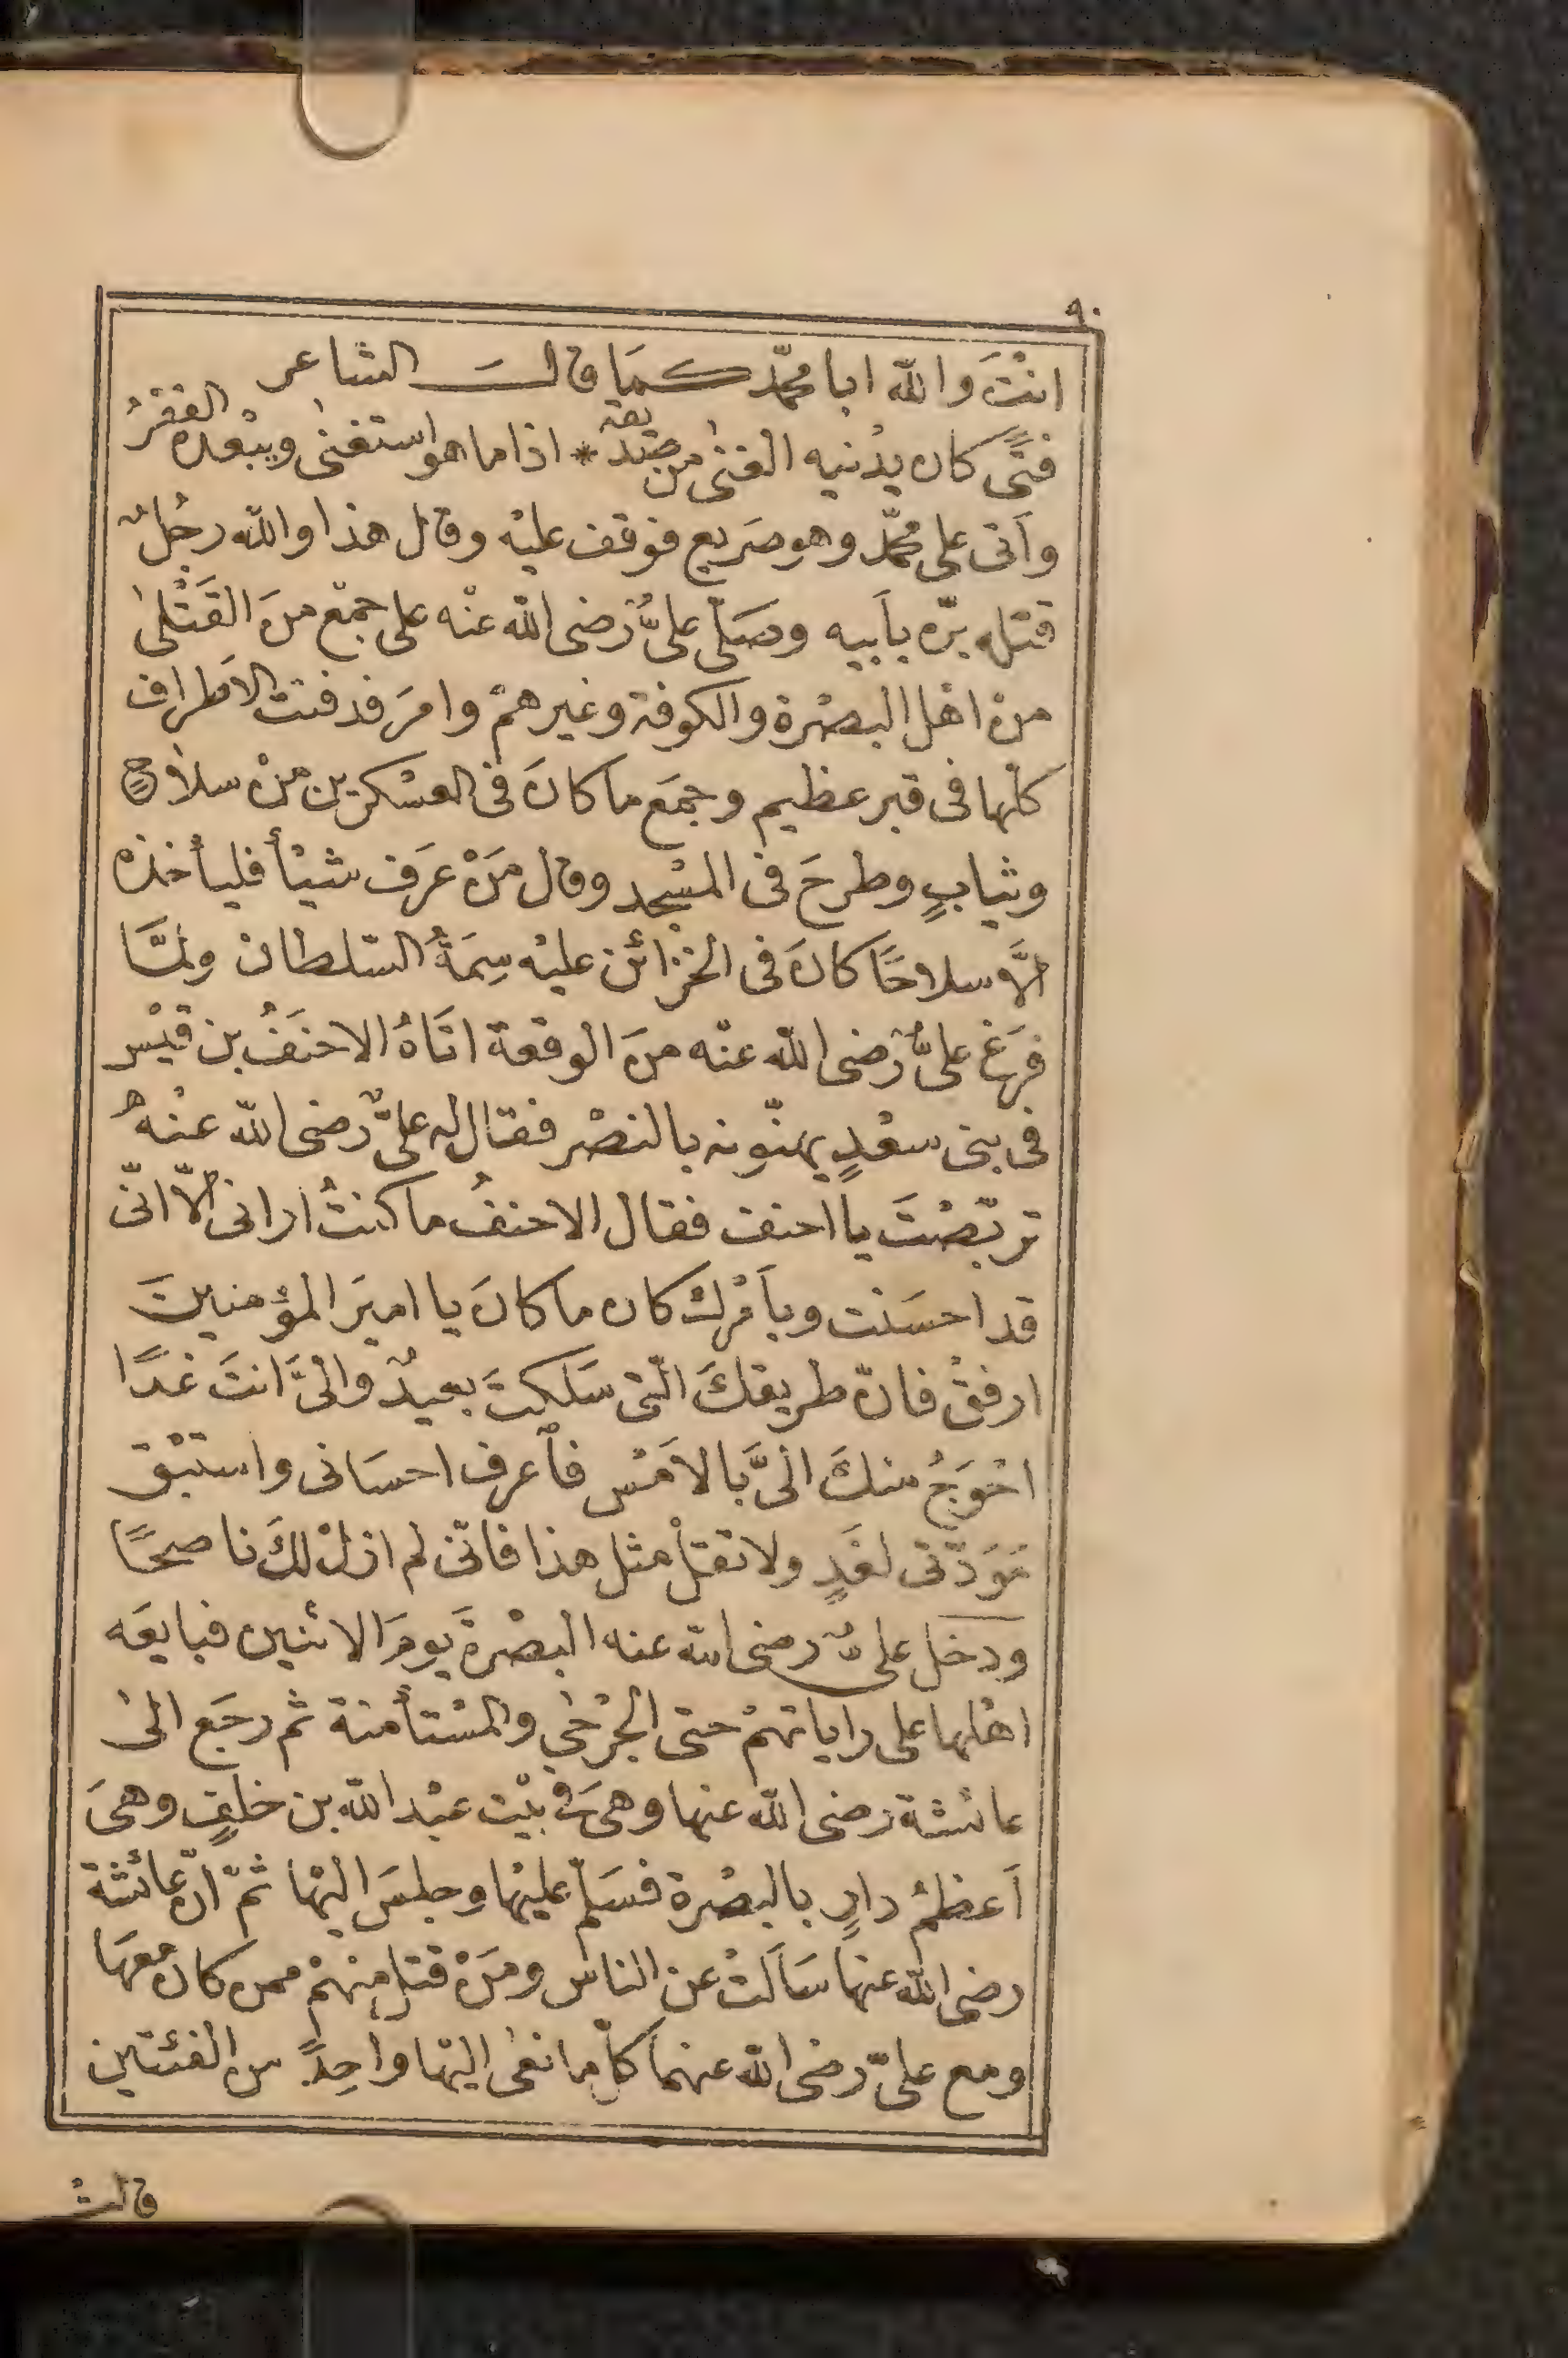 ٩٠
انْتَ والله ابا محمّد كمَا قالت الشاعر
فتًى كان يدْنيه الغنىٰ من صَديقه * اذا ما هو استغنىٰ ويبْعده الفقْرُ
وآتى على محمّد وهو صَريع فوقف عليْه وقال هذا والله رجُلٌ
قتله برّه بأبيه وصَلّى علىٌّ رَضى الله عنْه على جمْع منَ القَتْلىٰ
من اهْل البصْرة والكوفة وغيرهمْ وامرَ فدفنت الاَطراف
كلّها فى قبر عظيم وجمَع ما كانَ فى العسْكرين منْ سلاحٍ
وثيابٍ وطرحَ فى المسْجد وقال مَنْ عَرَف شيْأً فليأخذه
الَّا سلاحًا كانَ فى الخزائن عليْه سِمَةُ السّلطان ولمَّا
فرَغ علىٌّ رَضى الله عنْه منَ الوقعة اتَاهُ الاحنَفُ بن قيْس
فى بنى سعْدٍ يهنّونه بالنصْر فقال له علىٌّ رضى الله عنْهُ
تربّصْتَ يا احنف فقال الاحنفُ ما كنتُ ارانى الّا انّى
قد احسَنْت وبأمْرك كان ما كانَ يا اميرَ المؤمنينَ
ارفقْ فانّ طريقكَ الّتى سَلكتَ بعيدٌ والىَّ انتَ غدًا
احْوَجُ منكَ الىَّ بالاَمْس فاَعرف احسَانى واستبْق
مَوَدّتى لغَدٍ ولا تقلْ مثل هذا فانّى لم ازلْ لكَ ناصحًا
ودخل علىٌّ رضى الله عنه البصْرةَ يومَ الاثنين فبايعَه
اهْلها على راياتهمْ حتى الجرْحىٰ والمسْتأمنة ثم رجَع الىٰ
عائشة رضى الله عنها وهىَ فى بيْت عبْد الله بن خلفٍ وهىَ
اَعظمُ دارٍ بالبصْرة فسَلّم عليْها وجلسَ اليْها ثمّ انّ عائشة
رضى الله عنها سَاَلتْ عن الناس ومَنْ قتل منهمْ ممن كان معهَا
ومع علىّ رضى الله عنهما كلّما نعىٰ اليْها واحِدٌ من الفئتين
قالتْ